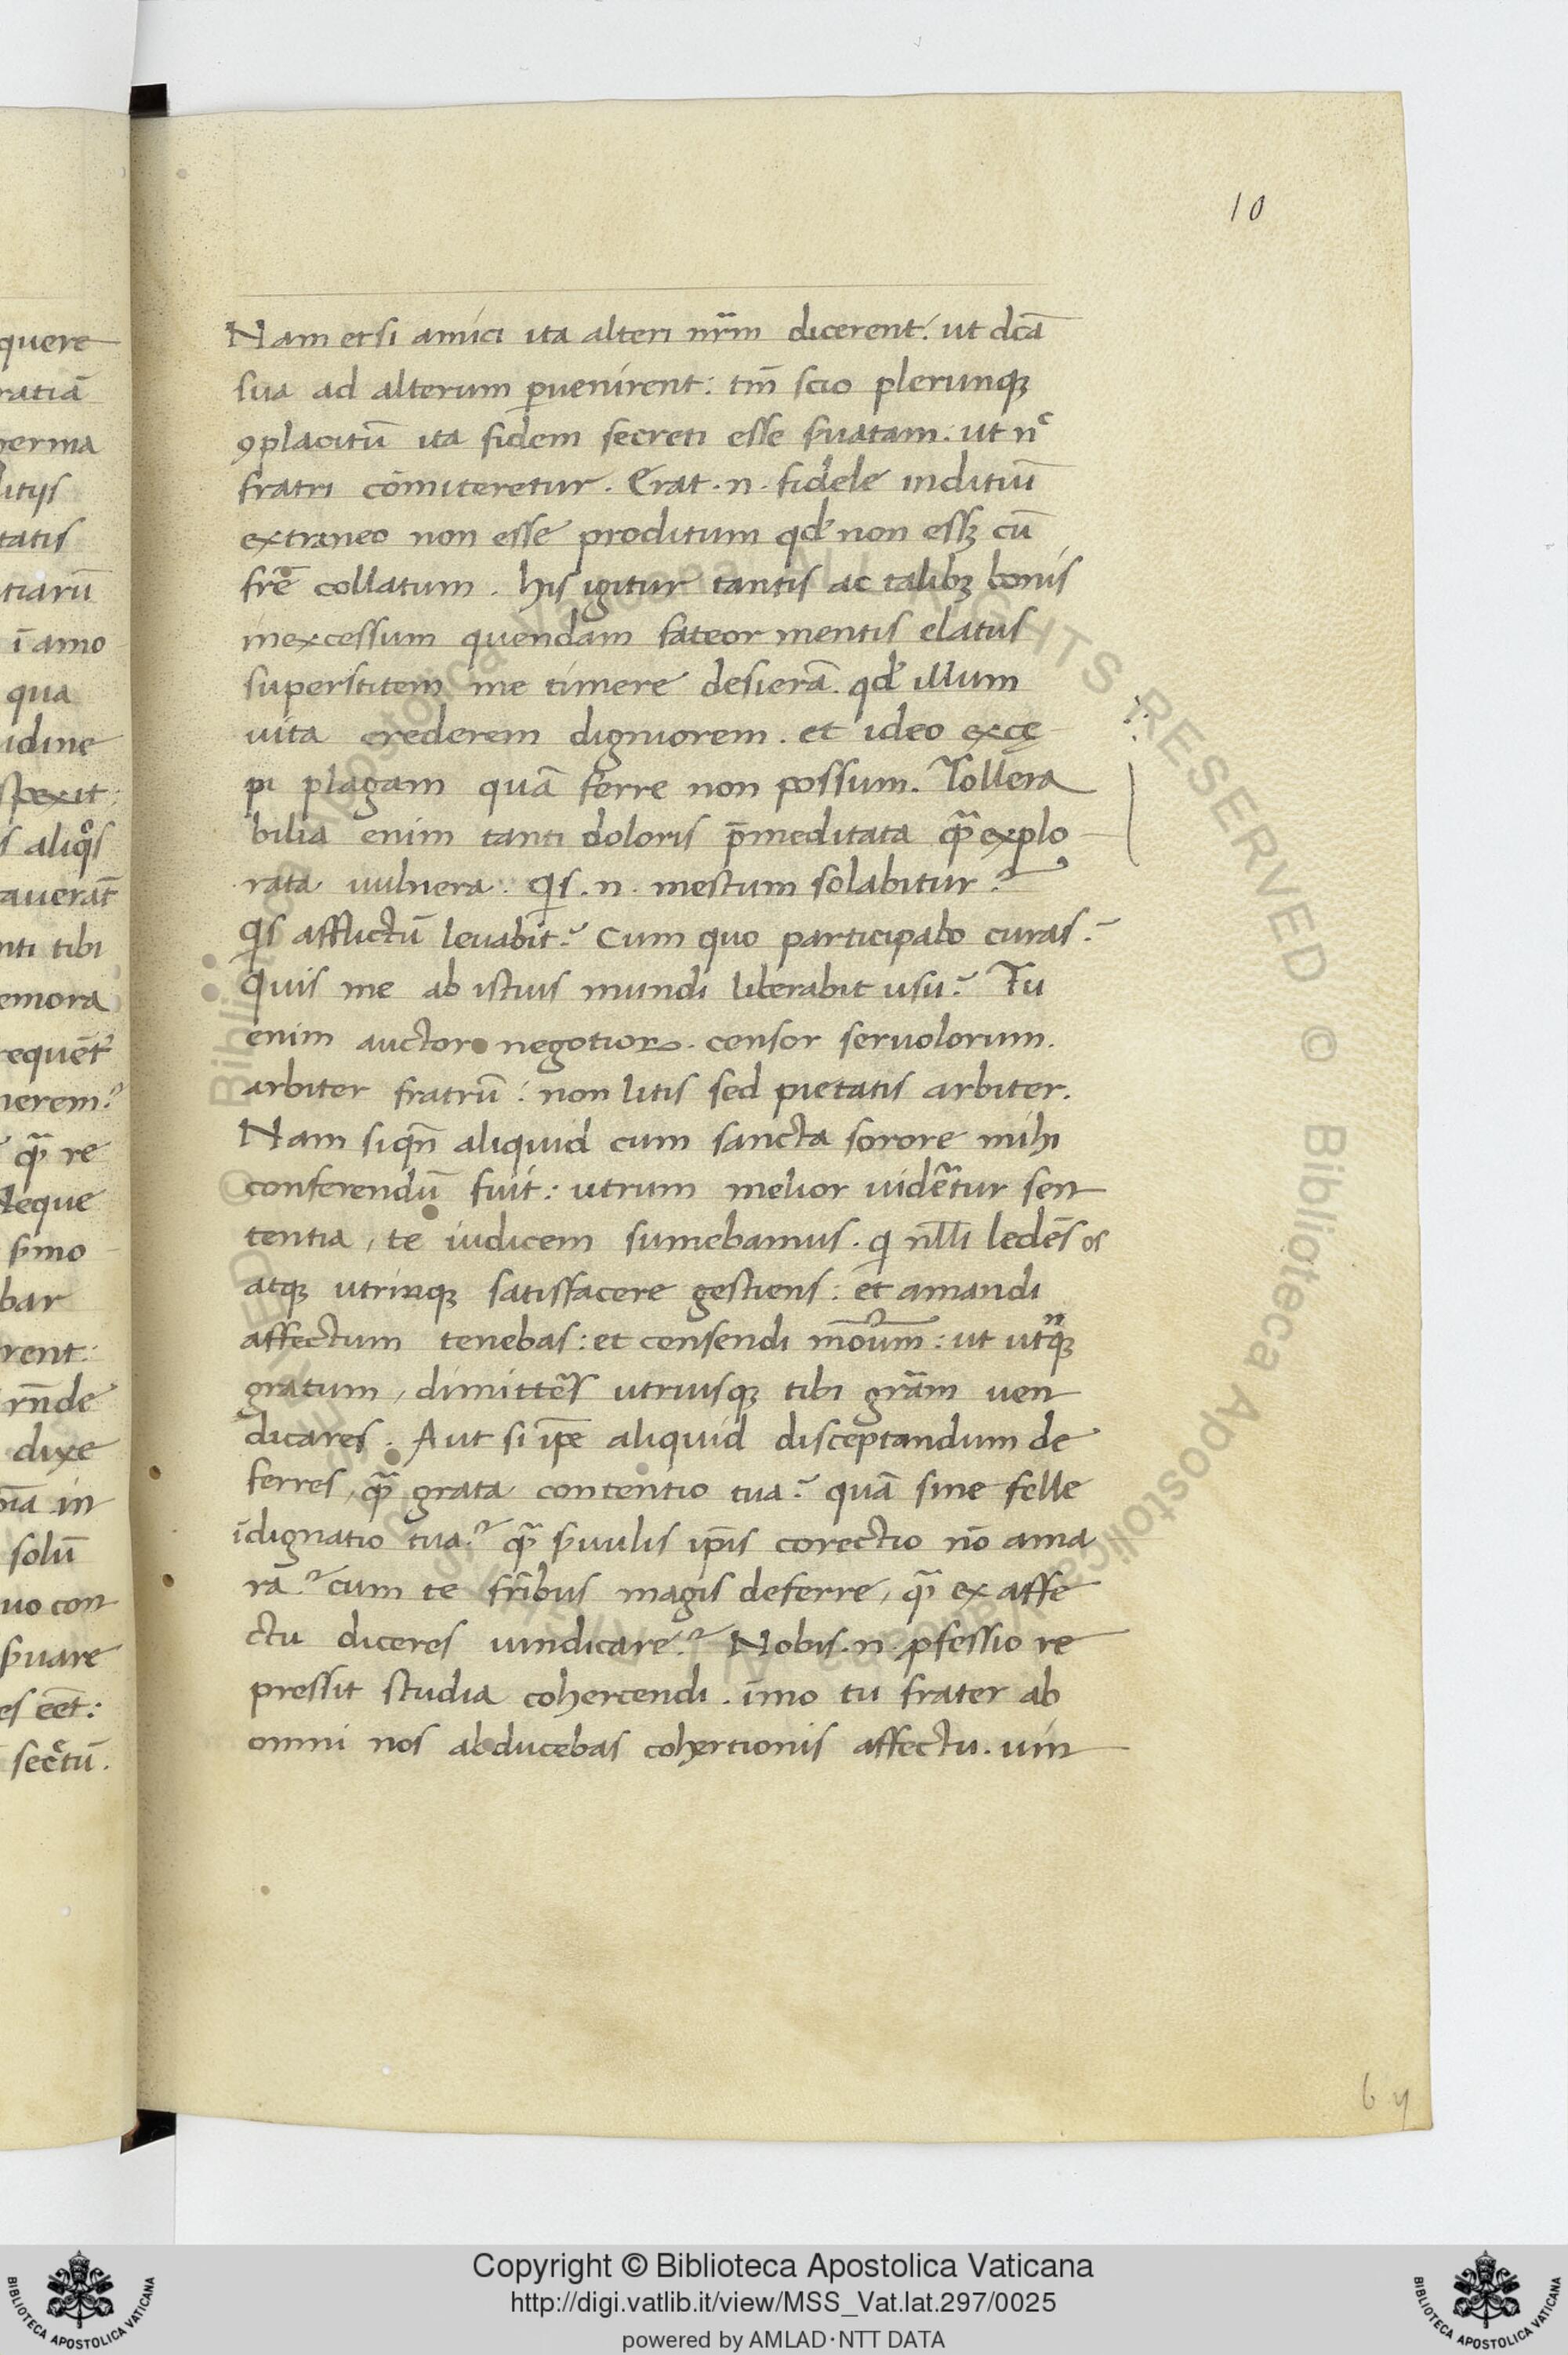 10
Nam et si amici ita alteri nr̄m dicerent: ut dc̄a
sua ad alterum ꝑuenirent: tm̄ scio plerunqꝫ
ꝯplacitū ita fidem secreti esse ẜuatam. ut nͤ
fratri cōmiteretur. Erat .n. fidele inditiū
extraneo non esse proditum qđ non essꝫ cū
fr̄e collatum. his igitur tantis ac talibꝫ bonis
inexcessum quendam fateor mentis elatus
superstitem me timere desierā. qđ illum
uita crederem digniorem. et ideo excę
pi plagam quā ferre non possum. Tollera
bilia enim tanti doloris p̄meditata qᷓ explo
rata uulnera. qͥs .n. mestum solabitur?
qͥs afflictū leuabit? Cum quo participabo curas?
Quis me ab istius mundi liberabit usu? Tu
enim auctor negotioꝝ. censor seruolorum.
arbiter fratrū: non litis sed pietatis arbiter.
Nam siqn̄ aliquid cum sancta sorore mihi
conferendū fuit: utrum melior uideᷓtur sen
tentia, te iudicem sumebamus. qͥ nll̄i ledēs os
atqꝫ utrinqꝫ satisfacere gestiens: et amandi
affectum tenebas: et censendi mōum̄: ut utͣqꝫ
gratum, dimittēs utriusqꝫ tibi grām uen
dicares. Aut si ip̄e aliquid disceptandum de
ferres, qᷓ grata contentio tua? quā sine felle
īdignatio tua? qᷓ ẜuulis ip̄is corectio nō ama
rā? cum te fr̄ibus magis deferre, qᷓ ex affe
ctu diceres uindicare? Nobis .n. ꝓfessio re
pressit studia cohercendi. īmo tu frater ab
omni nos abducebas cohertionis affectu. uin
quere
ratiā
herma
litijs
tatis
tiarū
ī amo
qua
idine
spexit:
s aliqͦs
auerāt
nti tibi
emora
requēt
nerem?
qᷓ re
Neque
ẜmo
bar
rent:
rn̄de
dixe
in
solū
uo con
ẜuare
es eēt:
secͤtū.
Copyright © Biblioteca Apostolica Vaticana
http://digi.vatlib.it/view/MSS_Vat.lat.297/0025
powered by AMLAD·NTT DATA
BIBLIOTECA APOSTOLICA VATICANA
BIBLIOTECA APOSTOLICA VATICANA